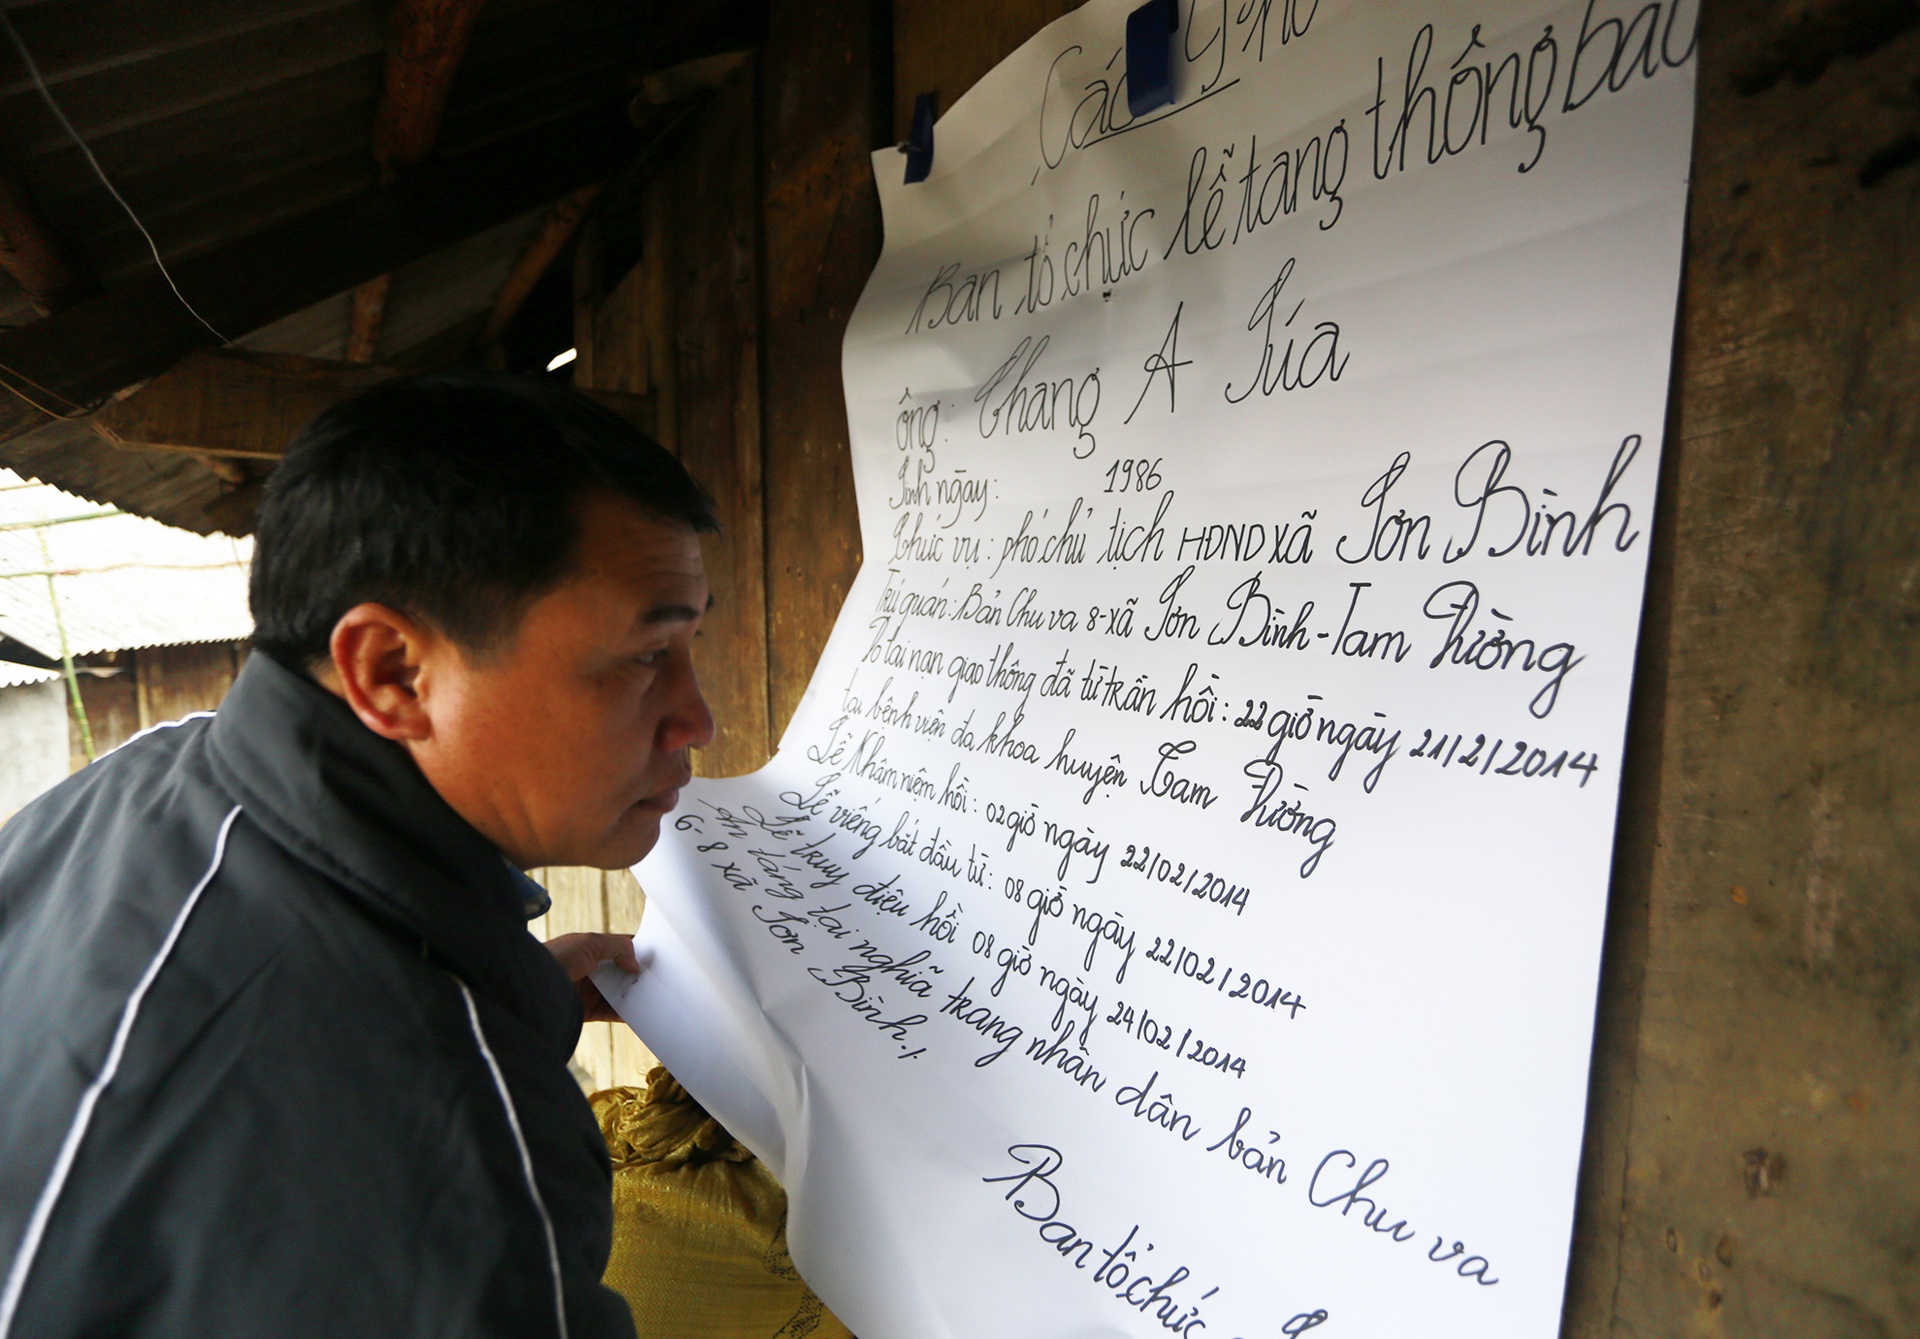 Các Phó
Ban tổ chức lễ tang thông báo
ông: Chang A Súa
Sinh ngày: 1986
Chức vụ: phó chủ tịch HĐND xã Sơn Bình
Trú quán: Bản Chu va 8-xã Sơn Bình-Tam Đường
Do tai nạn giao thông đã từ trần hồi: 22 giờ ngày 21/2/2014
tại bệnh viện đa khoa huyện Tam Đường
Lễ Nhâm niệm hồi: 02 giờ ngày 22/02/2014
Lễ viếng bắt đầu từ: 08 giờ ngày 22/02/2014
Lễ truy điệu hồi 08 giờ ngày 24/02/2014
An táng tại nghĩa trang nhân dân bản Chu va
6-8 xã Sơn Bình./.
Ban tổ chức